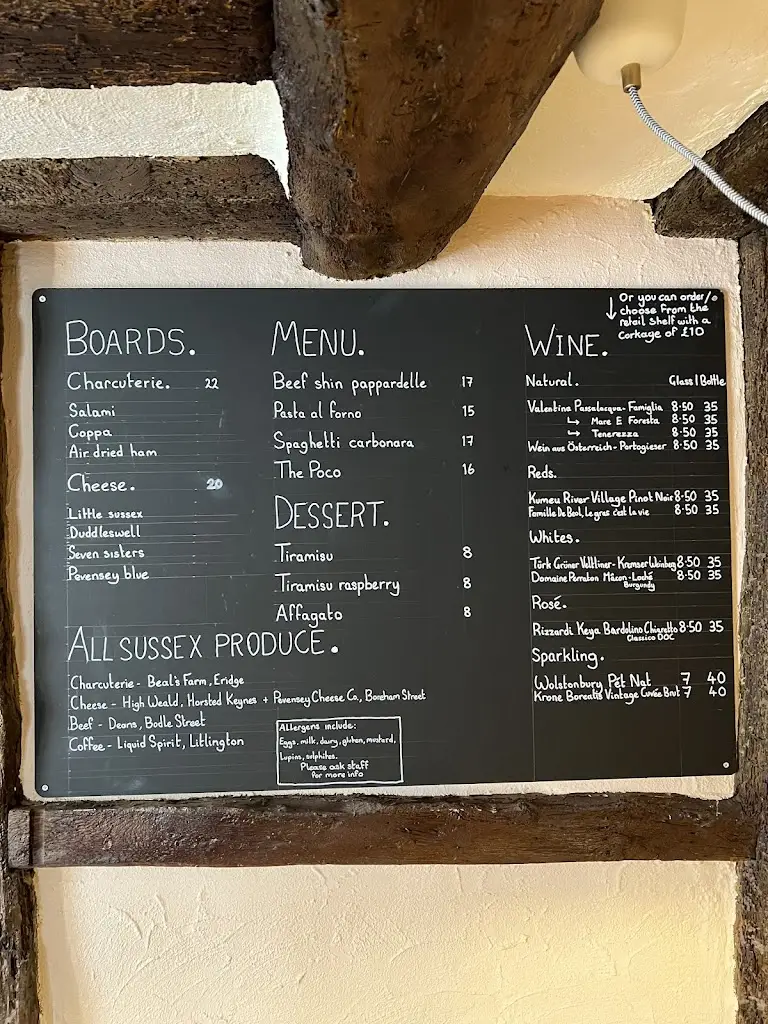 BOARDS.
Charcuterie. 22
Salami
Coppa
Air dried ham
Cheese. 20
Little sussex
Duddleswell
Seven sisters
Pevensey blue
MENU.
Beef shin pappardelle 17
Pasta al forno 15
Spaghetti carbonara 17
The Poco 16
DESSERT.
Tiramisu 8
Tiramisu raspberry 8
Affagato 8
ALL SUSSEX PRODUCE.
Charcuterie - Beal's Farm, Eridge
Cheese - High Weald, Horsted Keynes + Pevensey Cheese Co., Boreham Street
Beef - Deans, Bodle Street
Coffee - Liquid Spirit, Litlington
Allergens include:
Eggs, milk, dairy, gluten, mustard,
Lupins, sulphites.
Please ask staff
for more info
WINE.
↓ Or you can order/
choose from the
retail shelf with a
Corkage of £10
Natural. Glass | Bottle
Valentina Passalacqua - Famiglia 8.50 35
↳ Mare E Foresta 8.50 35
↳ Terrerezza 8.50 35
Wein aus Österreich - Portogieser 8.50 35
Reds.
Kumeu River Village Pinot Noir 8.50 35
Famille De Boel, le gras c'est la vie 8.50 35
Whites.
Türk Grüner Velltiner - Kremser Weinberg 8.50 35
Domaine Perraton Mâcon-Loché 8.50 35
Burgundy
Rosé.
Rizzardi Keya Bardolino Chiaretto 8.50 35
Classico DOC
Sparkling.
Wolstonbury Pét Nat 7 40
Krone Borealis Vintage Cuvée Brut 7 40